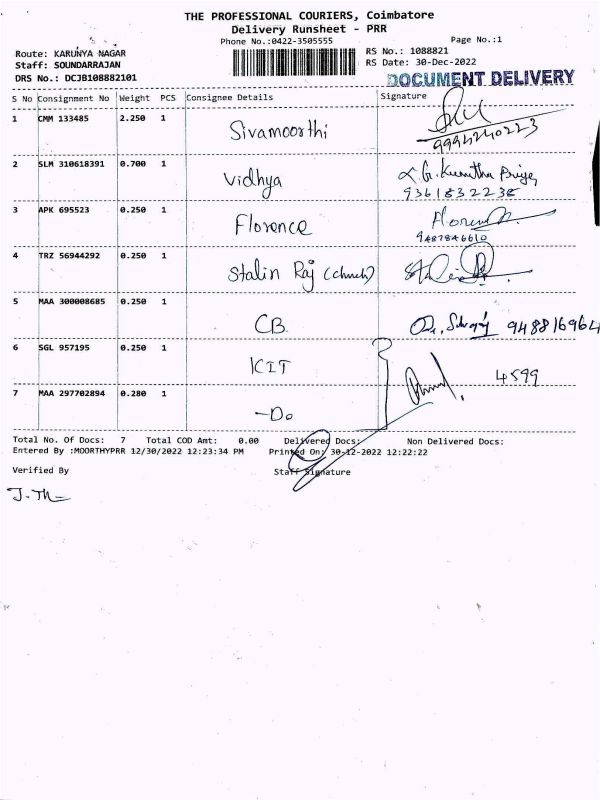 THE PROFESSIONAL COURIERS, Coimbatore
Delivery Runsheet - PRR
Phone No.:0422-3505555 Page No.:1
Route: KARUNYA NAGAR RS No.: 1088821
Staff: SOUNDARRAJAN RS Date: 30-Dec-2022
DRS No.: DCJB108882101 DOCUMENT DELIVERY
S No Consignment No Weight PCS Consignee Details Signature
1 CMM 133485 2.250 1 Sivamoorthi
9994240223
2 SLM 310618391 0.700 1 Vidhya
9361832238
3 APK 695523 0.250 1 Florence
9487846610
4 TRZ 56944292 0.250 1 Stalin Raj (church)
5 MAA 300008685 0.250 1 CB 9488169964
6 SGL 957195 0.250 1 KIT 4599
7 MAA 297702894 0.280 1 -Do
Total No. Of Docs: 7 Total COD Amt: 0.00 Delivered Docs: Non Delivered Docs:
Entered By :MOORTHYPRR 12/30/2022 12:23:34 PM Printed On: 30-12-2022 12:22:22
Verified By Staff Signature